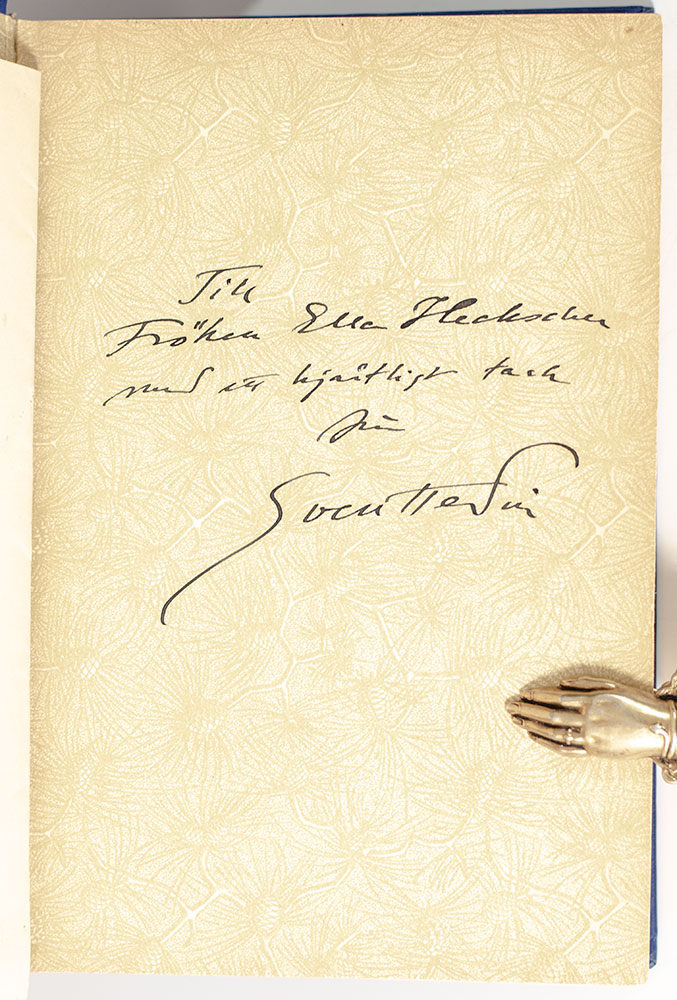 Till
Fröken Ella Heckscher
med ett hjärtligt tack
från
Sven Hedin